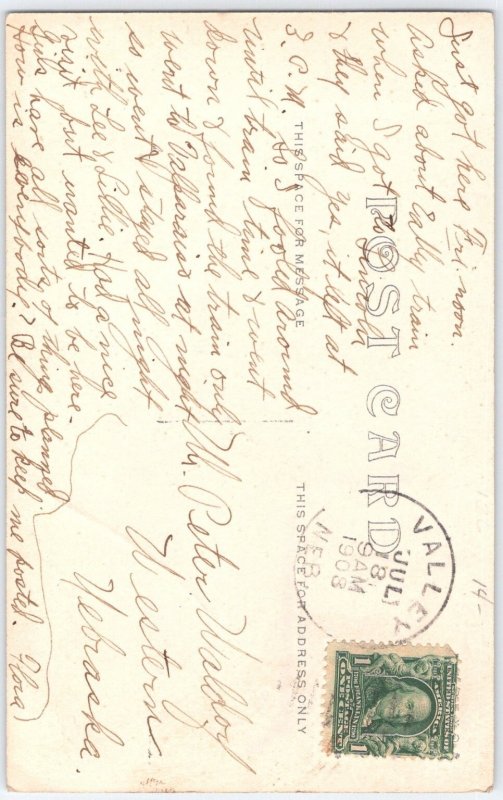 POST CARD
THIS SPACE FOR MESSAGE
THIS SPACE FOR ADDRESS ONLY
Just got here Fri. noon.
asked about Vally train
when I got to Lincoln
& they said yes, it left at
P.M. So I fooled around
until train time & went
down & found the train only
went to Valparaiso at night
so went & stayed all night
with Lee & Lillie. Had a nice
visit but wanted to be here.
Girls have all sorts of things planned.
How is everybody? Be sure to keep me posted. Flora
Mr. Peter Waldorf
Western.
Nebraska.
VALLEY
JUL
18
9 AM
1908
NEB.
1 1
SERIES 1902
UNITED STATES OF AMERICA
FRANKLIN
POSTAGE
ONE CENT
14-